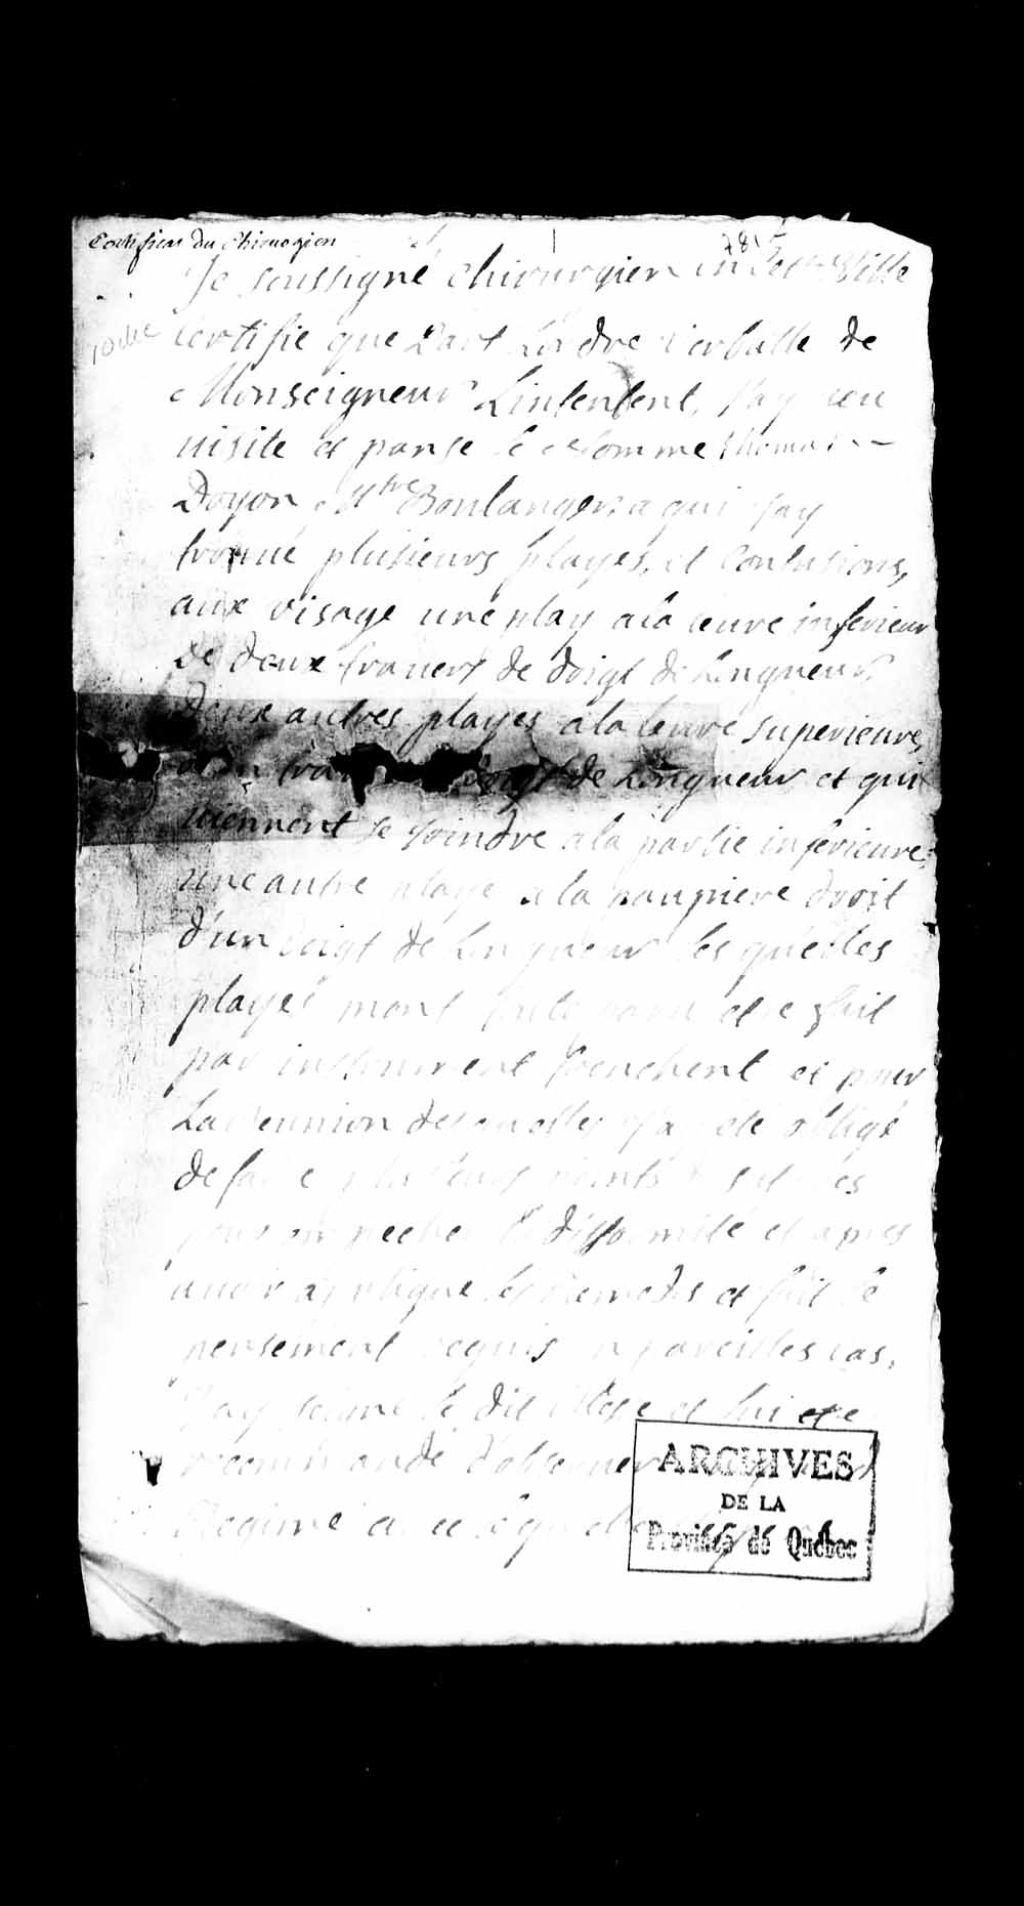 Certificat du chirurgien
781
Je soussigné chirurgien en Ville
Certifie que Lordre verballe de
Monseigneur Lintentent, J'ay veu
uisite et panse le nomme thomas
Doyon Mtre Boulanger, a qui J'ay
trouué plusieurs playes, et Contusions,
aux visage une play a la leure inferieur
De deux trauers de doigt de Longueur,
Deux autres playes a la leure superieure,
doigt de Longueur et qui
uiennent se Joindre a la partie inferieure,
une autre playe a la paupiere droit
d'un doigt de Longueur les quelles
playes mont paru etre fait
par instrument trenchent et pour
La reunion des quelles J'ay été obligé
de faire plusieurs points
pour empecher la difformité et apres
auoir apliqué les Remedes et fait le
pensement requis pareilles cas,
J'ay le dit et lui
recommandé d'obseruer
Regime
ARCHIVES
DE LA
Province de Québec